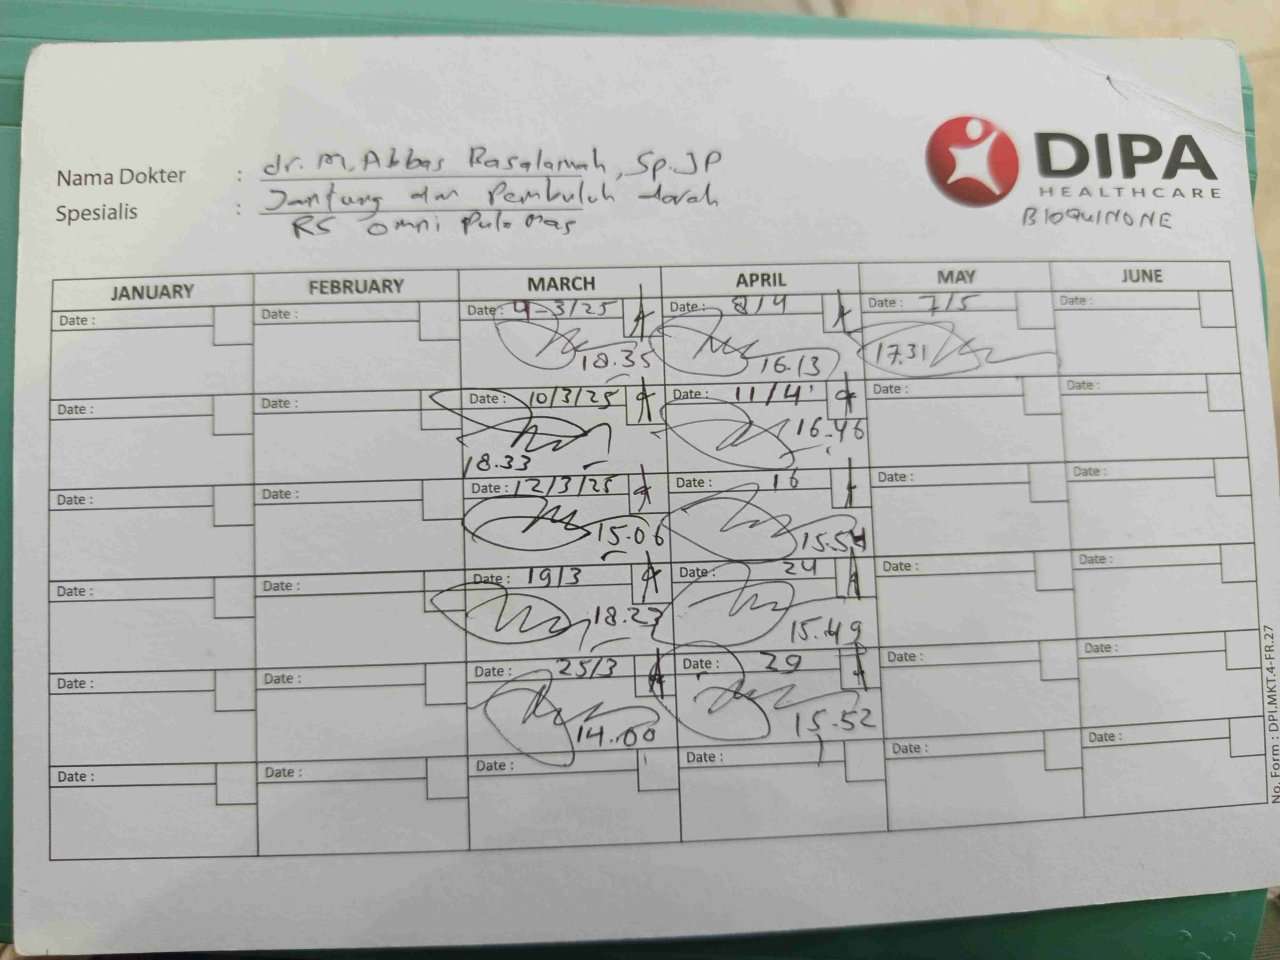 DIPA
HEALTHCARE
BIOQUINONE
Nama Dokter : dr. M. Abbas Basalamah, Sp.JP
Spesialis : Jantung dan Pembuluh darah
RS Omni Pulo Mas
JANUARY FEBRUARY MARCH APRIL MAY JUNE
Date : Date : Date : 4-3/25 Date : 8/4 Date : 7/5 Date :
18.35 16.13 17.31
Date : Date : Date : 10/3/25 Date : 11/4 Date : Date :
18.33 16.46
Date : Date : Date : 12/3/25 Date : 16 Date : Date :
15.06 15.54
Date : Date : Date : 19/3 Date : 24 Date : Date :
18.23 15.49
Date : Date : Date : 25/3 Date : 29 Date : Date :
14.00 15.52
Date : Date : Date : Date : Date : Date :
No. Form : DPI.MKT.4-FR.27